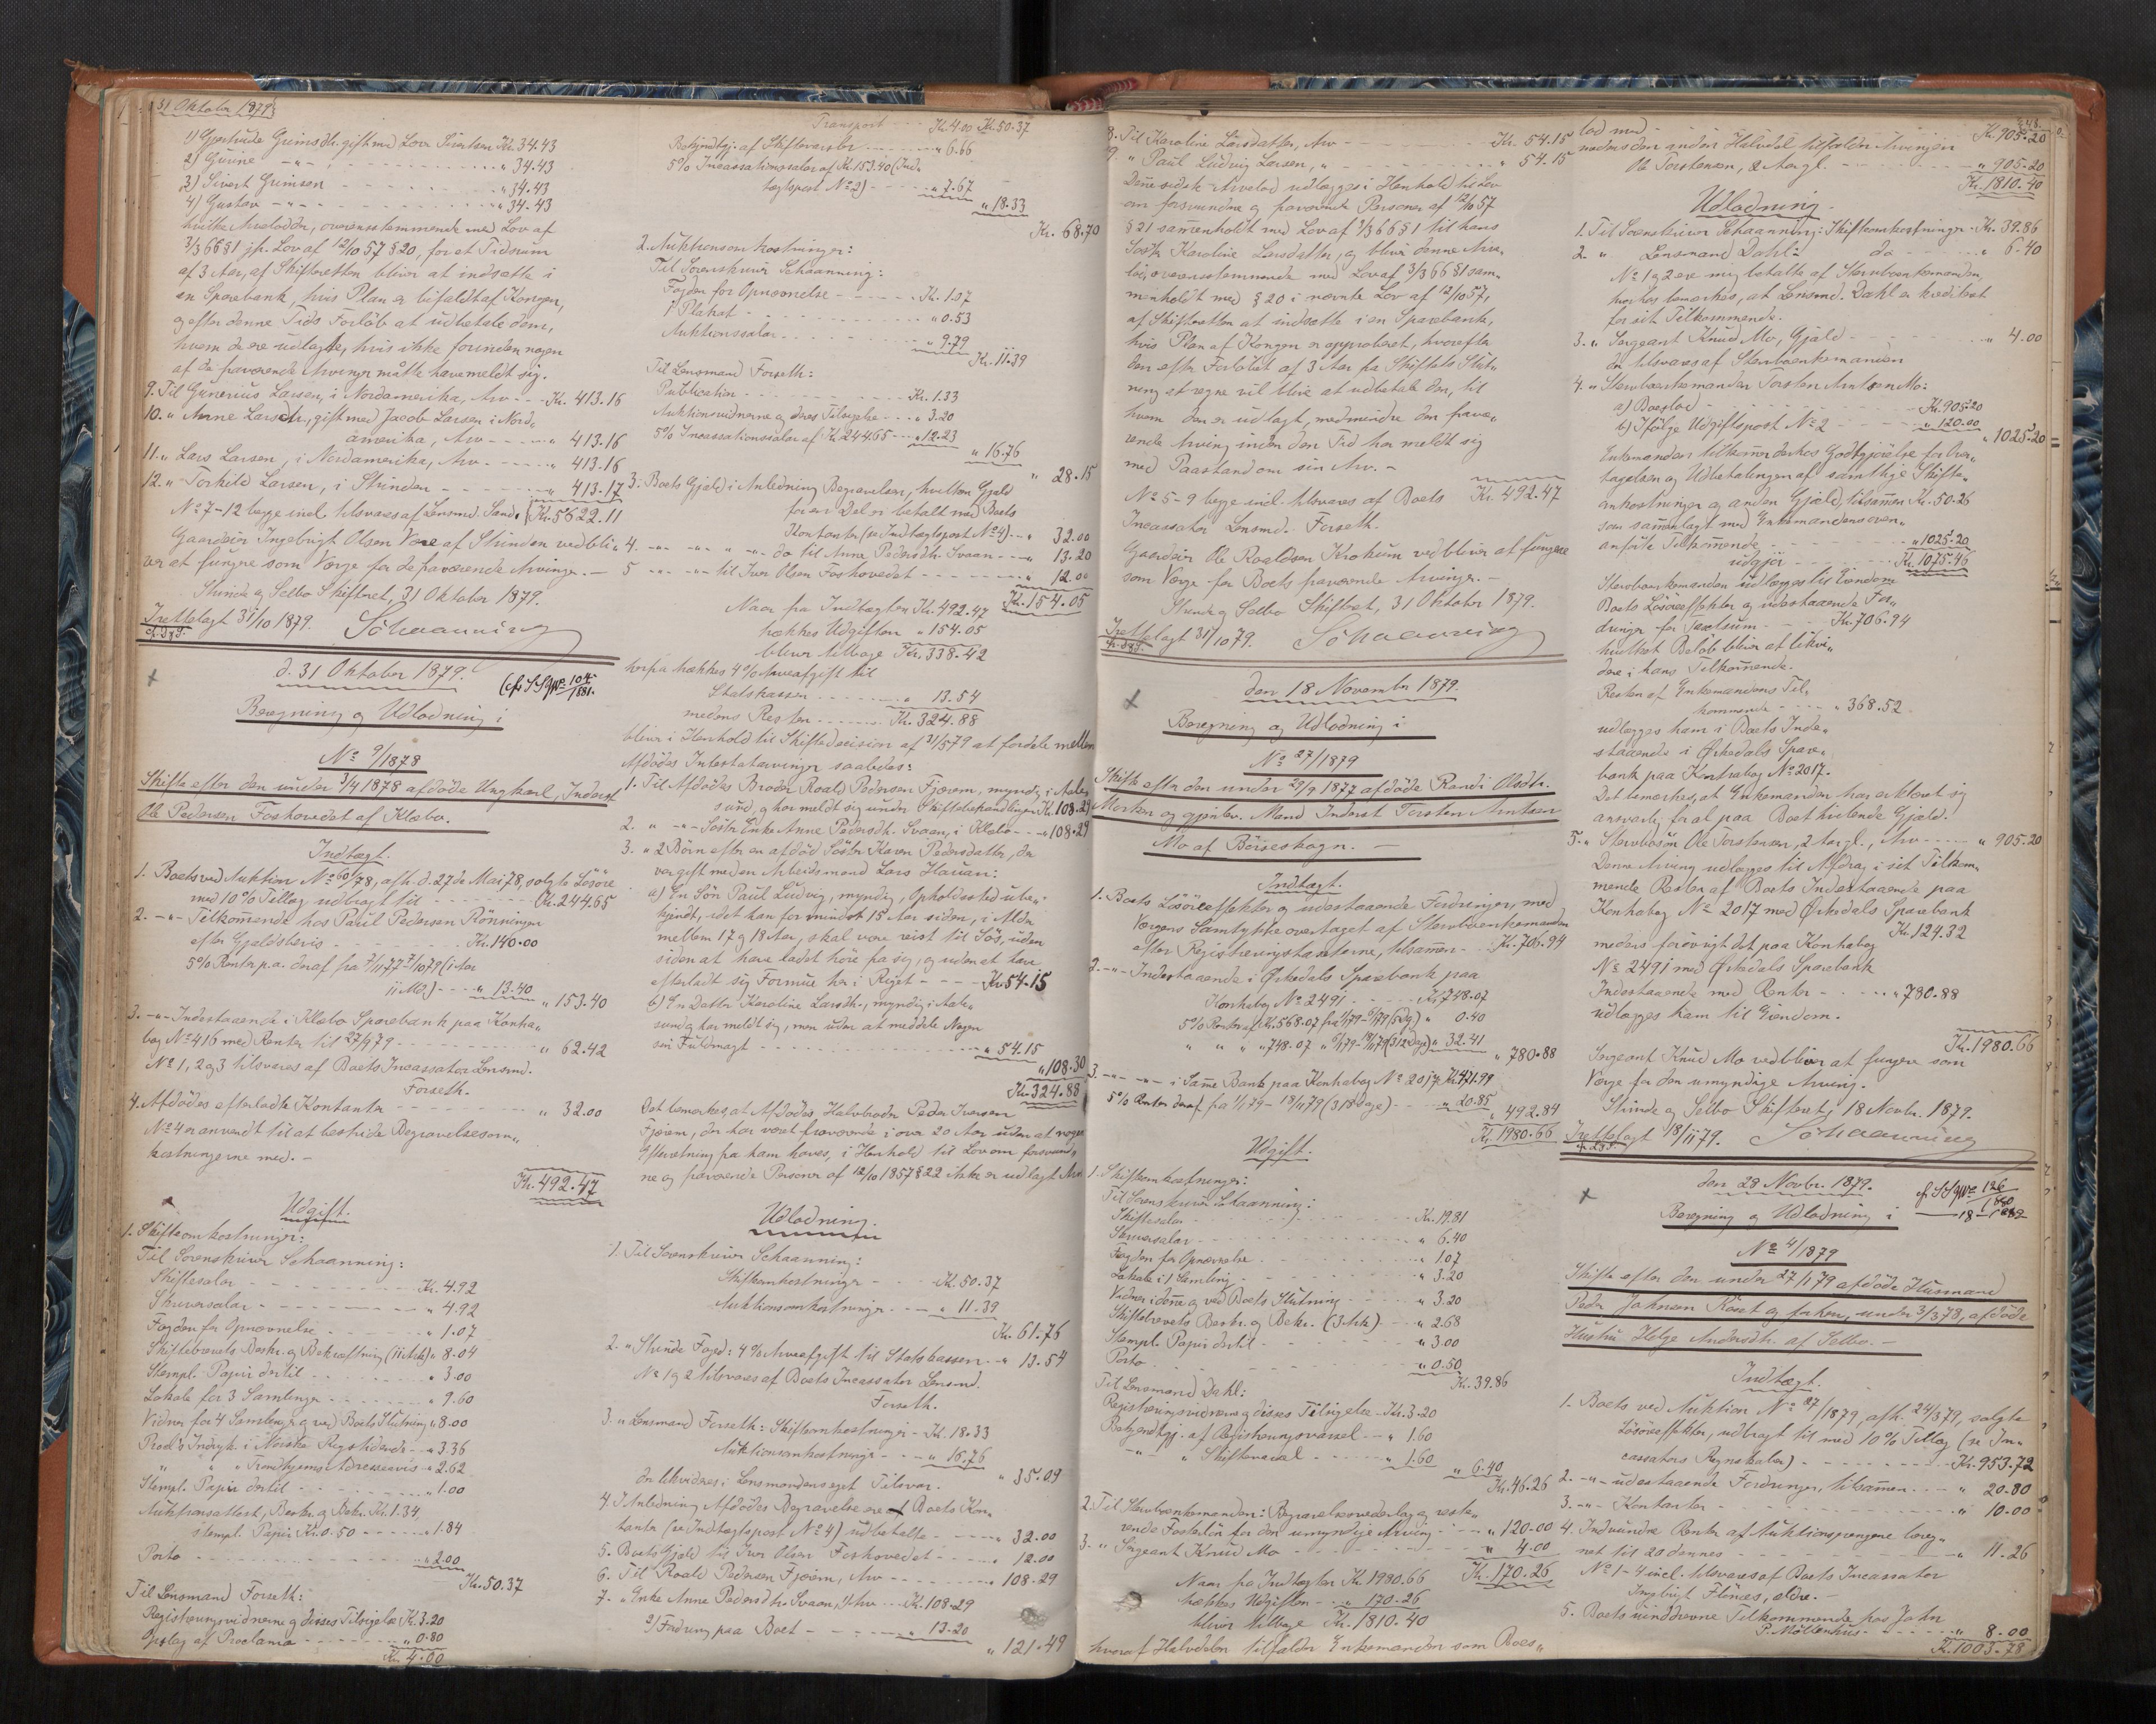 31 Oktober 1879.
1) Gjertrude Grimsdtr. gift med Lars Sivertsen Kr. 34.43
2) Gunne -"- " 34.43
3) Sivert Grimsen " 34.43
4) Gustav -"- " 34.43
hvilke Arvelodder, overensstemmende med Lov af
3/3 66 § 1 jfr. Lov af 12/10 57 § 20, for et Tidsrum
af 3 Aar, af Skifteretten bliver at indsætte i
en Sparebank, hvis Plan er bifaldt af Kongen,
og efter denne Tids Forløb at udbetale dem,
hvem de ere udlagte, hvis ikke forinden nogen
af de fraværende Arvinger måtte have meldt sig.
9. Til Gunerius Larsen, i Nordamerika, Arv Kr. 413.16
10. " Anne Larsdtr., gift med Jacob Larsen i Nord„
amerika, Arv " 413.16
11. " Lars Larsen, i Nordamerika, Arv " 413.16
12. " Torkild Larsen, i Strinden " 413.17
No 7-12 begge incl. tilsvares af Lensmd. Sand. Kr. 5622.11
Gaardeier Ingebrigt Olsen Være af Strinden vedbli„
ver at fungere som Værge for de fraværende Arvinger.
Strinde og Selbo Skifteret, 31 Oktober 1879.
Schaanning
Iretteloegt 31/10 1879.
d. 31 Oktober 1879.
(cfr. S. S. No 104/1881.
Beregning og Udlodning i
No 9/1878
Skifte efter den under 3/4 1878 afdøde Ungkarl, Inderst
Ole Pedersen Foshovedet af Klæbo.
Indtægt.
1. Boets ved Auktion No 60/78, afh. d. 27de Mai 78, solgte Løsøre
med 10% Tillæg udbragt til Kr. 244.65
2. -"- Tilkommende hos Paul Pedersen Rønningen
efter Gjældsbevis Kr. 140.00
5% Renter p.a. deraf fra 7/11 77 - 7/10 79 (1 Aar
11 Md.) " 13.40
" 153.40
3. -"- Indestaaende i Klæbo Sparebank paa Kontra„
bog No 416 med Renter til 27/9 79 " 62.42
No 1, 2 og 3 tilsvares af Boets Incassator Lensmd.
Forseth.
4. Afdødes efterladte Kontanter " 32.00
No 4 er anvendt til at bestride Begravelsesom„
kostningerne med.
Kr. 492.47
Udgift.
1. Skifteomkostninger:
Til Sorenskriver Schaanning:
Skiftesalær Kr. 4.92
Skriversalær " 4.92
Fogden for Opnævnelse " 1.07
Skiftebrevets Beskr. og Bekræftning (11 Ark) " 8.04
Stempl. Papir dertil " 3.00
Lokale for 3 Samlinger " 9.60
Vidner for 4 Samlinger og ved Boets Slutning " 8.00
Procl's Indryk. i Norske Rigstidende " 3.36
" " " Trondhjems Adresseavis " 2.62
Stempl. Papir dertil " 1.00
Auktionsattest, Beskr. og Bekr. Kr. 1.34,
stempl. Papir Kr. 0.50 " 1.84
Porto " 2.00
Kr. 50.37
Til Lensmand Forseth:
Registreringsvidnerne og disses Tilsigelse Kr. 3.20
Opslag af Proclama " 0.80
Kr. 4.00
Transport Kr. 4.00 Kr. 50.37
Bekjendtgj. af Skiftevarsler " 6.66
5% Incassationssalær af Kr. 153.40 (Ind„
tægtspost No 2) " 7.67
" 18.33
Kr. 68.70
2. Auktionsomkostninger:
Til Sorenskriver Schaanning:
Fogden for Opnævnelse Kr. 1.07
1 Plakat " 0.53
Auktionssalær " 9.79
Kr. 11.39
Til Lensmand Forseth:
Publication Kr. 1.33
Auktionsvidnerne og deres Tilsigelse " 3.20
5% Incassationssalær af Kr. 244.65 " 12.23
" 16.76
" 28.15
3. Boets Gjæld i Anledning Begravelsen, hvilken Gjæld
for en Del er betalt med Boets
Kontanter (se Indtægtspost No 4) " 32.00
4. -"- -"- " -"- do til Anne Pedersdtr. Svaan " 13.20
5 -"- -"- til Iver Olsen Foshovedet " 12.00
Kr. 154.05
Naar fra Indtægten Kr. 492.47
trækkes Udgiften " 154.05
bliver tilbage Kr. 338.42
hvorfra trækkes 4% Arveafgift til
Statskassen " 13.54
medens Resten Kr. 324.88
bliver i Henhold til Skiftedecision af 31/5 79 at fordele mellem
Afdødes Intestatarvinger saaledes:
1. Til Afdødes Broder Roald Pedersen Fjærem, myndig, i Aale„
sund, og har meldt sig under Skiftebehandlingen Kr. 108.29
2. " -"- Søster Enke Anne Pedersdtr. Svaan, i Klæbo " 108.29
3. " 2 Børn efter en afdød Søster Karen Pedersdatter, der
var gift med en Arbeidsmand Lars Havran:
a) En Søn Paul Ludvig, myndig, Opholdssted ube„
kjendt, idet han for mindst 15 Aar siden, i Alder
mellem 17 og 18 Aar, skal være reist til Søs, uden
siden at have ladet høre fra sig, og uden at have
efterladt sig Formue her i Riget Kr. 54.15
b) En Datter Karoline Larsdtr., myndig, i Aale„
sund og har meldt sig, men uden at meddele Nogen
sin Fuldmagt " 54.15
" 108.30
Kr. 324.88
Det bemærkes, at Afdødes Halvbroder Peder Iversen
Fjærem, der har været fraværende i over 20 Aar uden at nogen
Efterretning fra ham haves, i Henhold til Lov om forsvund„
ne og fraværende Personer af 12/10 1857 § 22 ikke er udlagt Arv.
Udlodning.
1. Til Sorenskriver Schaanning:
Skifteomkostninger Kr. 50.37
Auktionsomkostninger " 11.39
Kr. 61.76
2. " Strinde Fogd: 4% Arveafgift til Statskassen " 13.54
No 1 og 2 tilsvares af Boets Incassator Lensmd.
Forseth.
3. " Lensmand Forseth: Skifteomkostninger Kr. 18.33
Auktionsomkostninger " 16.76
" 35.09
der likvideres i Lensmandens eget Tilsvar.
4. I Anledning Afdødes Begravelse ere af Boets Kon„
tanter (se Indtægtspost No 4) udbetalte " 32.00
5. Boets Gjæld til Iver Olsen Foshovedet " 12.00
6. Til Roald Pedersen Fjærem, Arv " 108.29
7. " Enke Anne Pedersdtr. Svaan, 1) Arv Kr. 108.29
2) Fordring paa Boet " 13.20
" 121.49
8. Til Karoline Larsdatter, Arv Kr. 54.15
9. " Paul Ludvig Larsen, " " 54.15
Denne sidste Arvelod udlægges i Henhold til Lov
om forsvundne og fraværende Personer af 12/10 57
§ 21 sammenholdt med Lov af 3/3 66 § 1 til hans
Søster Karoline Larsdatter, og bliver denne Arve„
lod, overensstemmende med Lov af 3/3 66 § 1 sam„
menholdt med § 20 i nævnte Lov af 12/10 57,
af Skifteretten at indsætte i en Sparebank,
hvis Plan af Kongen er approberet, hvorefter
den efter Forløbet af 3 Aar fra Skiftets Slut„
ning at regne vil blive at udbetale den, til
hvem den er udlagt, medmindre den fravæ„
rende Arving inden den Tid har meldt sig
med Paastand om sin Arv.
No 5-9 begge incl. tilsvares af Boets Kr. 492.47
Incassator Lensmd. Forseth.
Gaardeier Ole Roaldsen Krokum vedbliver at fungere
som Værge for Boets fraværende Arvinger.
Strinde og Selbo Skifteret, 31 Oktober 1879.
Schaanning
31/10 79.
den 18 November 1879.
Beregning og Udlodning i
No 27/1879
Skifte efter den under 29/9 1877 afdøde Randi Olsdtr.
Morken og gjenlev. Mand Inderst Torsten Arntsen
Mo af Børseskogn.
Indtægt.
1. Boets Løsøreeffekter og udestaaende Fordringer, med
Værgens Samtykke overtaget af Stervboenkemanden
efter Registreringstaxterne, tilsammen Kr. 706.94
2. -"- Indestaaende i Ørkedals Sparebank paa
Kontrabog No 2491 Kr. 748.07
5% Renter af Kr. 568.07 fra 1/1 79 - 6/1 79 (5 Dg) " 0.40
" " " 748.07 " 6/1 79 - 18/11 79 (312 Dage) " 32.41
" 780.88
3. -"- -"- i Samme Bank paa Kontrabog No 2017 Kr. 471.99
5% Renter deraf fra 1/1 79 - 18/11 79 (318 Dage) " 20.85
" 492.84
Kr. 1980.66
Udgift.
1. Skifteomkostninger:
Til Sorenskriver Schaanning:
Skiftesalær Kr. 19.81
Skriversalær " 6.40
Fogden for Opnævnelse " 1.07
Lokale i 1 Samling " 3.20
Vidner i denne og ved Boets Slutning " 3.20
Skiftebrevets Beskr. og Bekr. (3 Ark) " 2.68
Stempl. Papir dertil " 3.00
Porto " 0.50
Kr. 39.86
Til Lensmand Dahl:
Registreringsvidnerne og disses Tilsigelse Kr. 3.20
Bekjendtgj. af Registreringsvarsel " 1.60
-"- " Skiftevarsel " 1.60
" 6.40
Kr. 46.26
2. Til Stervboenkemanden: Begravelsesvederlag og reste„
rende Fosterløn for den umyndige Arving " 120.00
3. " Sergeant Knud Mo " 4.00
Kr. 170.26
Naar fra Indtægten Kr. 1980.66
trækkes Udgiften " 170.26
bliver tilbage Kr. 1810.40
hvoraf Halvdelen tilfalder Enkemanden som Boes„
248.
lod med Kr. 905.20
medens den anden Halvdel tilfalder Arvingen
Ole Torstensen, 2 Aar gl. " 905.20
Kr. 1810.40
Udlodning.
1. Til Sorenskriver Schaanning: Skifteomkostninger Kr. 39.86
2. " Lensmand Dahl: do " 6.40
No 1 og 2 ere mig betalte af Stervboenkemanden,
hvorhos bemærkes, at Lensmd. Dahl er krediteret
for sit Tilkommende.
3. " Sergeant Knud Mo, Gjæld " 4.00
der tilsvares af Stervboenkemanden
4. " Stervboenkemanden Torsten Arntsen Mo:
a) Boeslod Kr. 905.20
b) Ifølge Udgiftspost No 2 " 120.00
" 1025.20
Enkemanden tilkommer derhos Godtgjørelse for Over„
tagelsen og Udbetalingen af samtlige Skifte„
omkostninger og anden Gjæld, tilsammen Kr. 50.26
som sammenlagt med Enkemandens oven„
anførte Tilkommende " 1025.20
udgjør Kr. 1075.46
Stervboenkemanden udlægges til Eiendom
Boets Løsøreeffekter og udestaaende For„
dringer for Taxtsum Kr. 706.94
hvilket Beløb bliver at likvi„
dere i hans Tilkommende.
Resten af Enkemandens Til„
kommende " 368.52
udlægges ham i Boets Inde„
staaende i Ørkedals Spare„
bank paa Kontrabog No 2017.
Det bemærkes, at Enkemanden har erklæret sig
ansvarlig for al paa Boet hvilende Gjæld.
5. " Stervboesøn Ole Torstensen, 2 Aar gl., Arv " 905.20
Denne Arving udlægges til Afdrag i sit Tilkom„
mende Resten af Boets Indestaaende paa
Kontrabog No 2017 med Ørkedals Sparebank
Kr. 124.32
medens forøvrigt det paa Kontrabog
No 2491 med Ørkedals Sparebank
Indestaaende med Renter " 780.88
udlægges ham til Eiendom.
Kr. 1980.66
Sergeant Knud Mo vedbliver at fungere som
Værge for den umyndige Arving.
Strinde og Selbo Skifteret, 18 Novbr. 1879.
Schaanning
18/11 79.
den 28 Novbr. 1879.
Beregning og Udlodning i
No 4/1879
Skifte efter den under 27/1 79 afdøde Husmand
Peder Johnsen Røset og forhen, under 3/3 78, afdøde
Hustru Helge Andersdtr. af Selbo.
Indtægt.
1. Boets ved Auktion No 27/1879, afh. 24/3 79, solgte
Løsøreeffekter, udbragt til med 10% Tillæg (se In„
cassators Regnskaber) Kr. 953.72
2. -"- udestaaende Fordringer, tilsammen " 20.80
3. -"- Kontanter " 10.00
4. Indvundne Renter af Auktionspengene bereg„
net til 20 dennes " 11.26
No 1-4 incl. tilsvares af Boets Incassator
Ingebrigt Flønæs, ældre.
5. Boets uinddrevne Tilkommende hos John
P. Møllenhus " 8.00
Kr. 1003.78